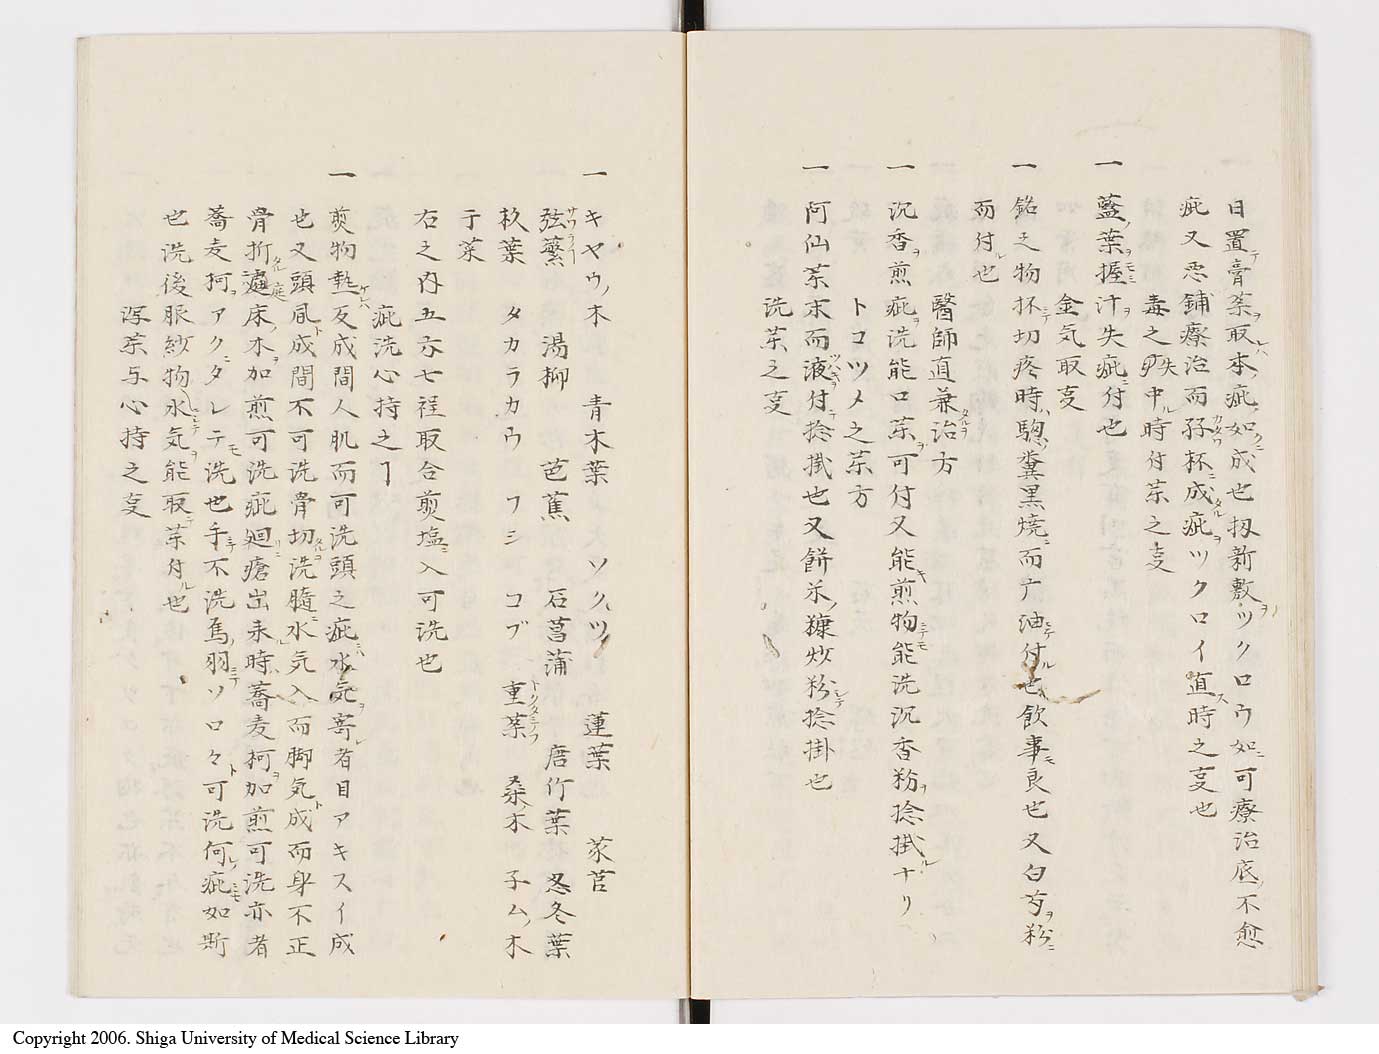 日置膏薬ヲ取本疵如成也扨新敷ヲツクロウ如ニ可療治底不愈
疵又悪鋪療治而孫杯ニ成疵ヲツクロイ直ス時之㕝也
毒之矢中ル時付薬之㕝
一 藍葉ヲ握汁ヲ失疵ニ付也
金気取㕝
一 銘之物杯ニテ切疼時ハ驄糞黒焼ニ而油ニテ付ル也飲事モ良也又白芍ヲ粉ニ
而付ル也
醫師直兼治タルヲ方
一 沉香ヲ煎疵ヲ洗能口薬ヲ可付又能煎物ニテモ能洗沉香粉ヲ捻掛ルナリ
トコツメ之薬方
一 阿仙薬末而液ツバキヲ付テ捻掛也又餅米ノ糠炒粉シテ捻掛也
洗薬之㕝
一 キヤウノ木 青木葉 ソクツ 蓮葉 茨苔
弦蘩 湯柳 芭蕉 石菖蒲 唐竹葉 忍冬葉
杉葉 タカラカウ フシ コブ 重薬 桑木 子ムノ木
于菜
右之内五六七程取合煎塩ニ入可洗也
疵洗心持之ヿ
一 煎物熱ケレハ冷成間人肌而可洗頭之疵ニハ水気ヲ寄レ者目アキスイ成
也又頭風ト成間不可洗骨切タルヲ洗髓ニ水気入而脚気ト成而身不正
骨折タル庭床木ヲ加煎可洗疵廻リニ瘡出来時ハ蕎麦柯ヲ加煎可洗亦者
蕎麦柯ヲアクニタレテモ洗也手ニテ不洗鳥ノ羽ニテソロ々ト可洗何レノ疵ニモ如斯
也洗後服紗物ニテ水気ヲ能取テ薬付ル也
深薬与心持之㕝
Copyright 2006. Shiga University of Medical Science Library